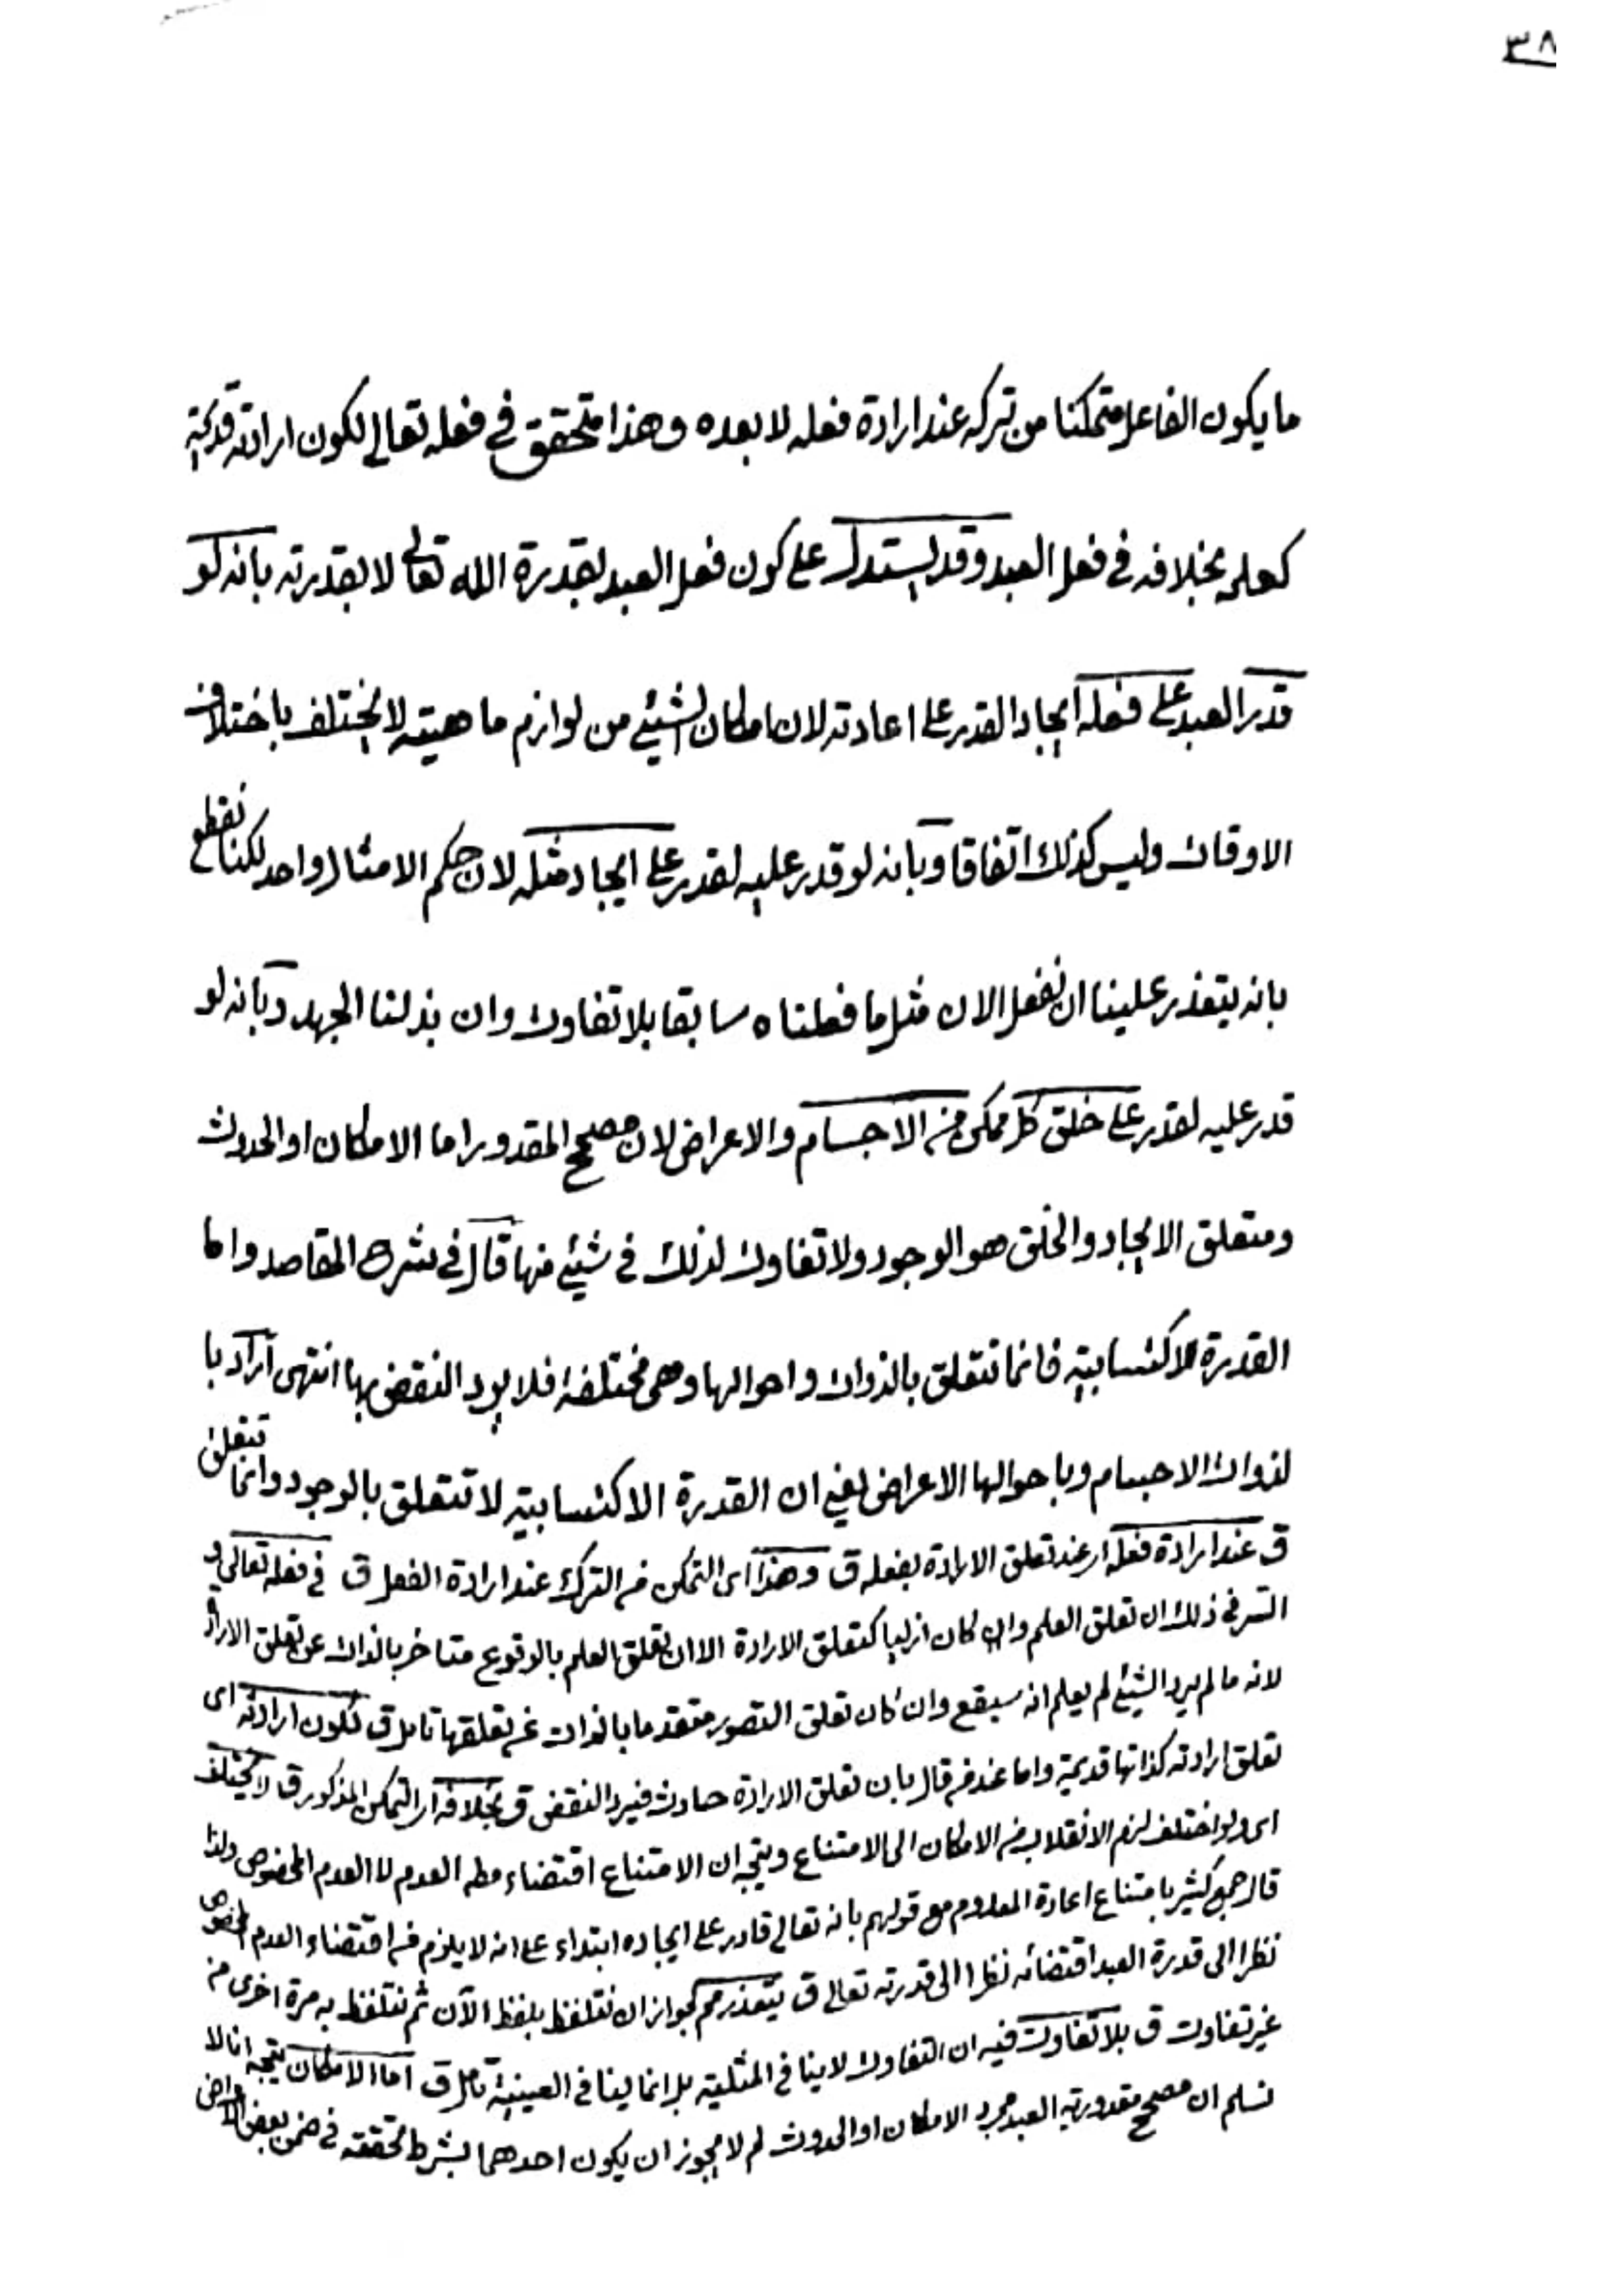 ٣٨
ما يكون الفاعل متمكنا من تركه عند ارادة فعله لا بعده وهذا متحقق في فعله تعالى لكون ارادته قديمة
كعلمه بخلافه في فعل العبد وقد يستدل على كون فعل العبد بقدرة الله تعالى لا بقدرته بانه لو
قدر العبد على فعله ايجادا لقدر على اعادته لان امكان الشيئ من لوازم ماهيته لا يختلف باختلاف
الاوقات وليس كذلك اتفاقا وبانه لو قدر عليه لقدر على ايجاد مثله لان حكم الامثال واحد لكنا نقطع
بانه يتعذر علينا ان نفعل الان مثل ما فعلناه سابقا بلا تفاوت وان بذلنا الجهد وبانه لو
قدر عليه لقدر على خلق كل ممكن من الاجسام والاعراض لان مصحح المقدور اما الامكان او الحدوث
ومتعلق الايجاد والخلق هو الوجود ولا تفاوت لذلك في شيئ منها قال في شرح المقاصد واما
القدرة الاكتسابية فانما تتعلق بالذوات واحوالها وهى مختلفة فلا يرد النقض بها انتهى اراد با
لذوات الاجسام وباحوالها الاعراض يعني ان القدرة الاكتسابية لا تتعلق بالوجود وانما تتعلق
ق عند ارادة فعله ار عند تعلق الارادة بفعله ق وهذا اى التمكن من الترك عند ارادة الفعل ق في فعله تعالى و
السر في ذلك ان تعلق العلم وان كان ازليا كتعلق الارادة الا ان تعلق العلم بالوقوع متاخر بالذات عن تعلق الارادة
لانه ما لم يرد الشيئ لم يعلم انه سيقع وان كان تعلق التصور متقدما بالذات عن تعلقها تامل ق لكون ارادته اى
تعلق ارادته كذاتها قديمة واما عند من قال بان تعلق الارادة حادث فيرد النقض ق بخلافه ار التمكن المذكور ق لا يختلف
اى ولو اختلف لزم الانقلاب من الامكان الى الامتناع ويتجه ان الامتناع اقتضاء مطلق العدم لا العدم المخصوص ولذا
قال جمع كثير بامتناع اعادة المعدوم مع قولهم بانه تعالى قادر على ايجاده ابتداء على انه لا يلزم من اقتضاء العدم المخصوص
نظرا الى قدرة العبد اقتضائه نظرا الى قدرته تعالى ق يتعذر مم لجواز ان نتلفظ بلفظ الآن ثم نتلفظ به مرة اخرى من
غير تفاوت ق بلا تفاوت فيه ان التفاوت لا ينافي المثلية بل انما ينافي العينية تامل ق اما الامكان يتجه انا لا
نسلم ان مصحح مقدورية العبد مجرد الامكان او الحدوث لم لا يجوز ان يكون احدهما بشرط تحققه في ضمن بعض الاعراض